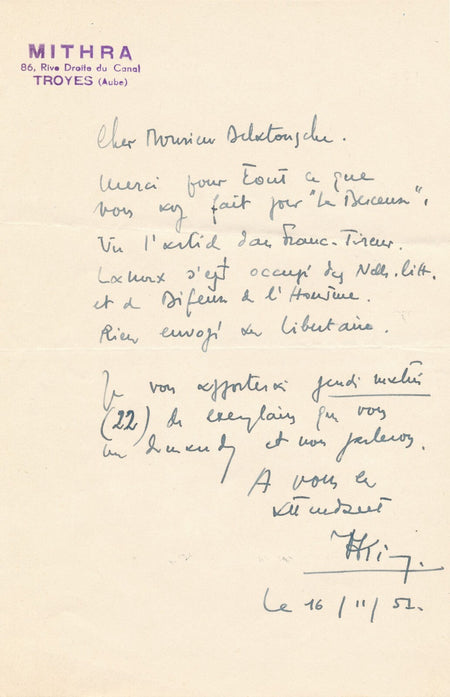 MITHRA
86, Rive Droite du Canal
TROYES (Aube)
Cher Monsieur Delatousche.
Merci pour tout ce que
vous avez fait pour "La Berceuse".
Vu l'article dans Franc-Tireur.
s'est occupé des Nelles. Litt.
et de Défense de l'Homme.
Rien envoyé au Libertaire.
Je vous apporterai jeudi matin
(22) exemplaires que vous
me demandez et nous parlerons.
A vous en
attendant
Le 16/11/51.